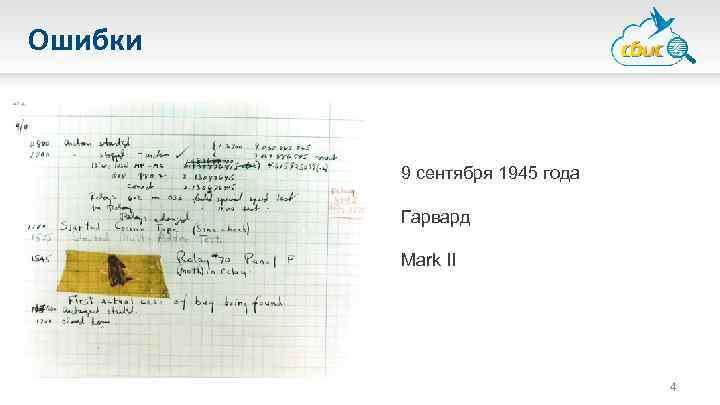 Ошибки
сбис
9/9
0800 Antan started
1000 " stopped - antan ✓
1.2700 9.037 847 025
9.037 846 995 correct
13'uc (032) MP-MC
033 PRO 2 2.130476415
correct 2.130676415
Relays 6-2 in 033 failed special speed test
in Relay
Relays changed
1100 Started Cosine Tape (Sine check)
1525 Started Multi Adder Test.
1545 Relay #70 Panel F
(moth) in relay.
First actual case of bug being found.
antangent started.
1700 closed down.
9 сентября 1945 года
Гарвард
Mark II
4